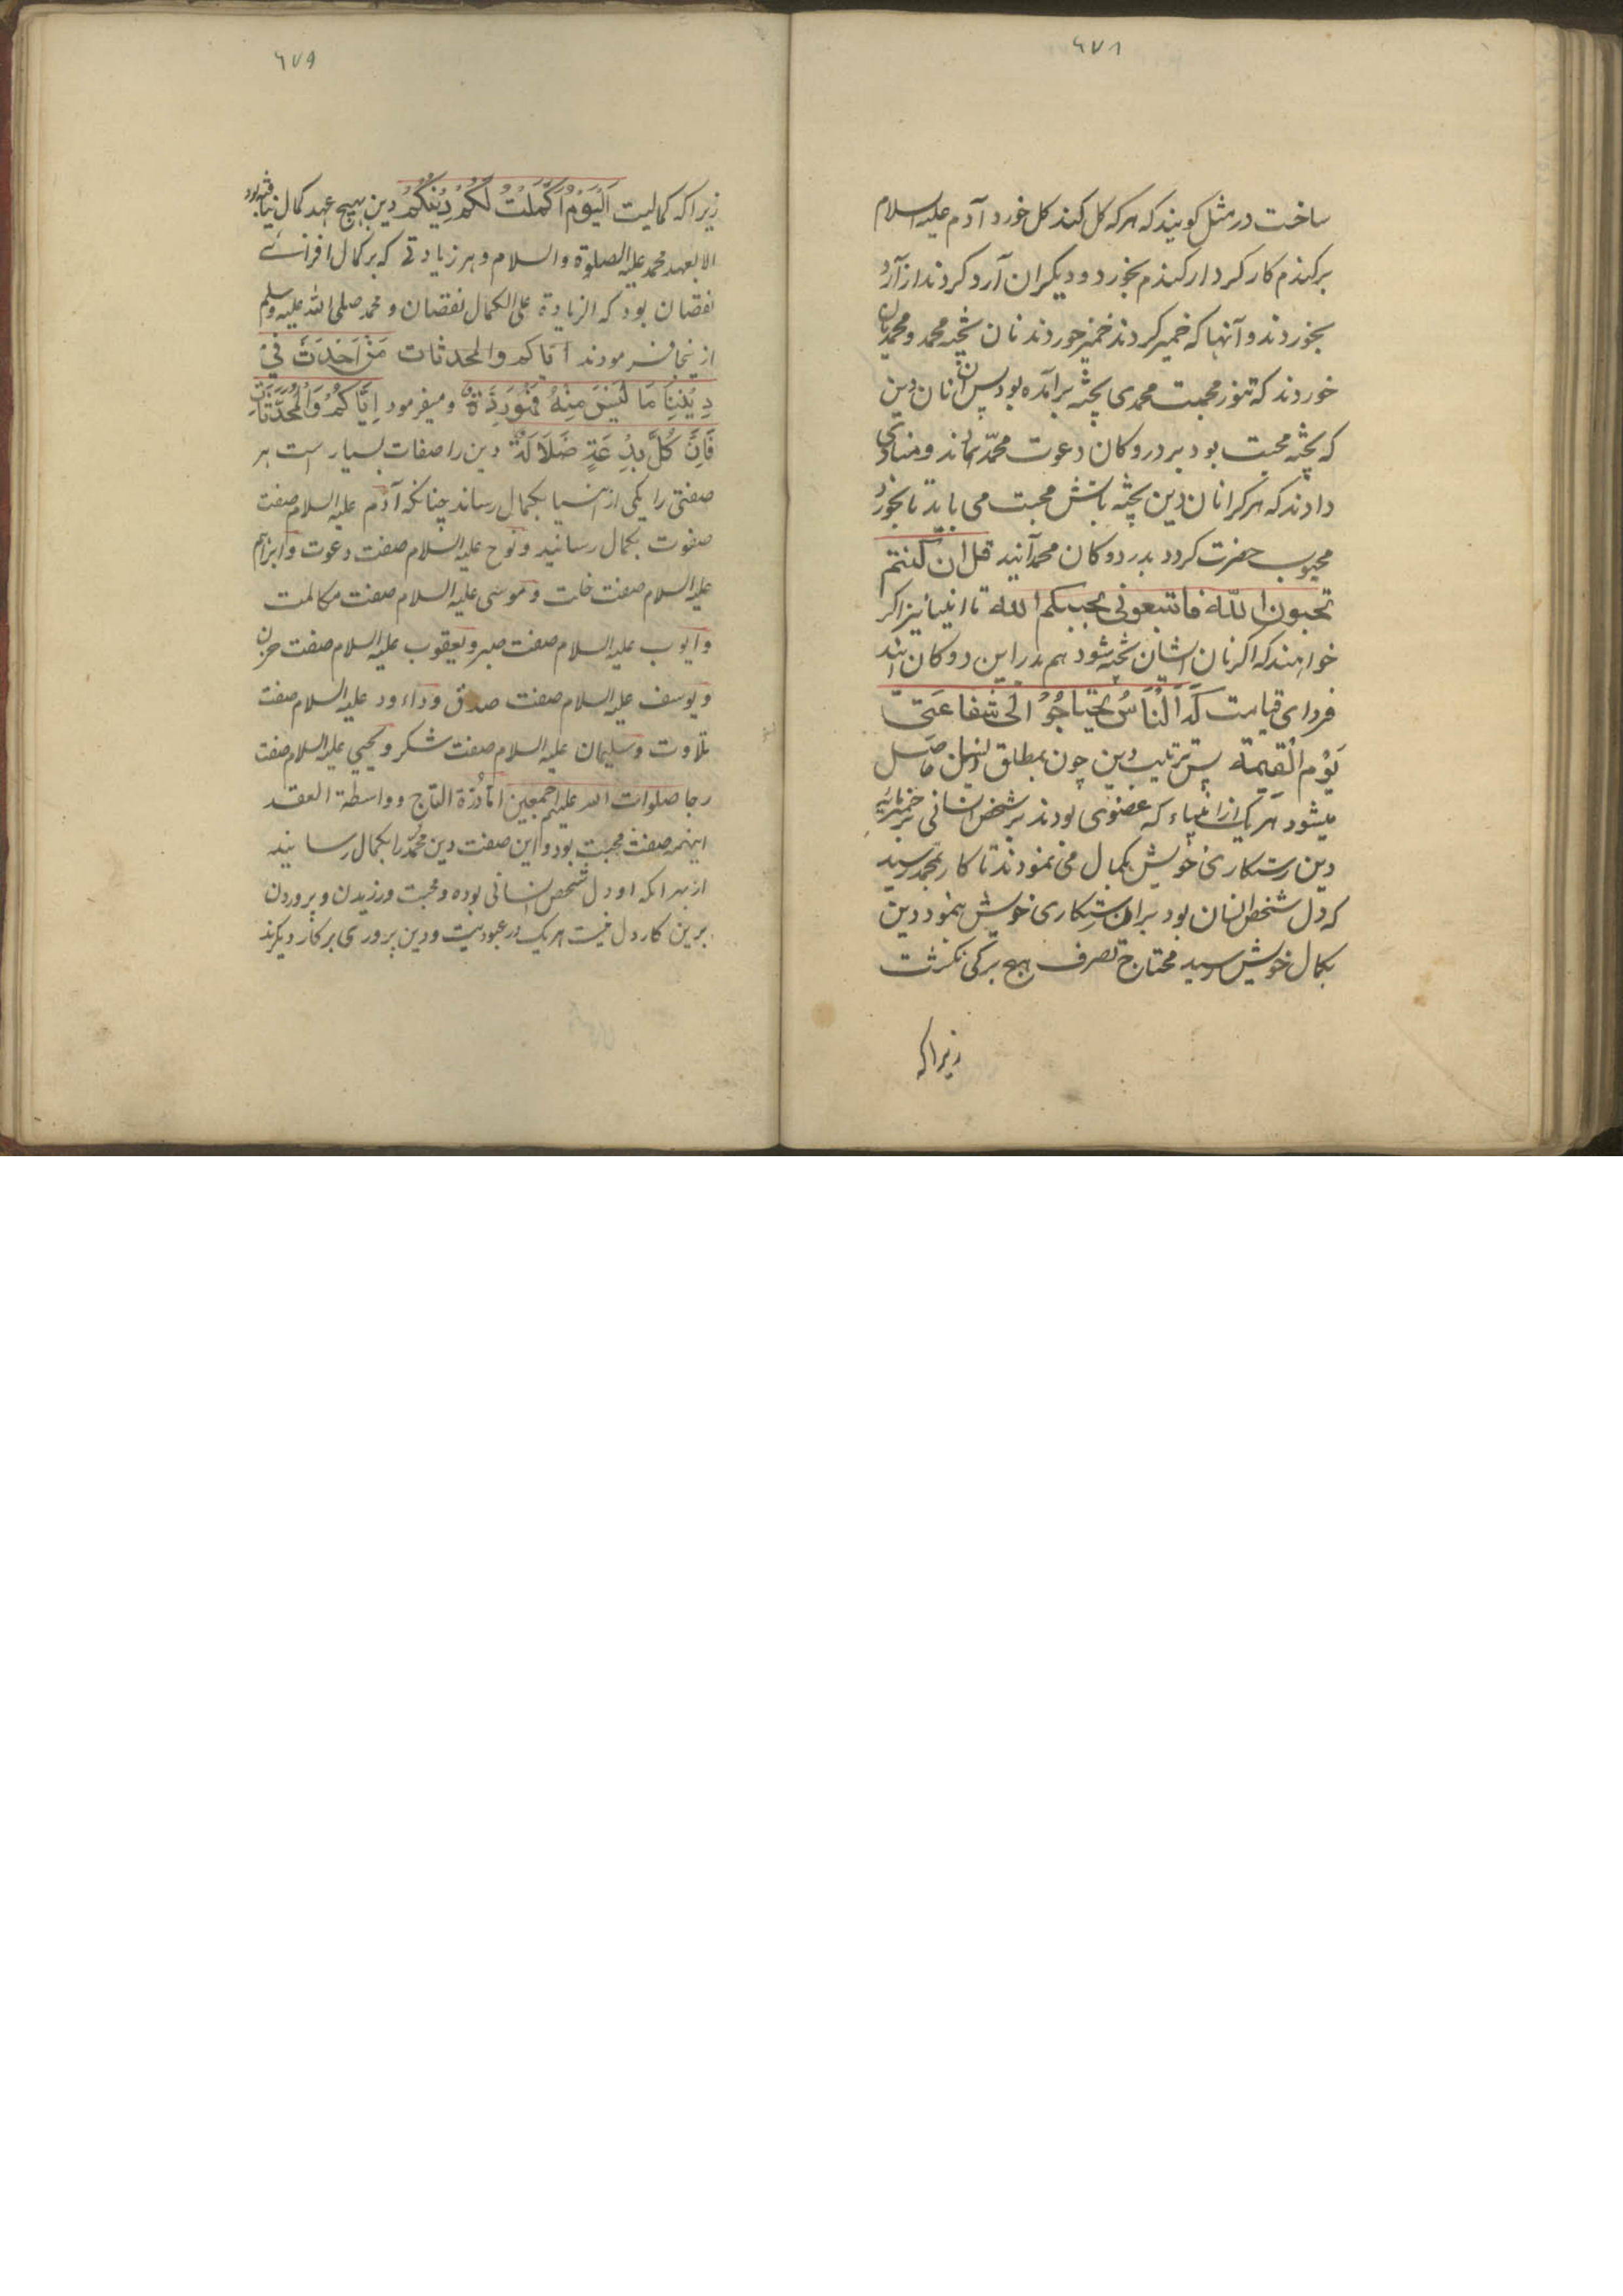 ٦٧٨
ساخت در مثل کویند که هر که کل کند کل خورد آدم علیه السلام
بر کندم کار کرد از کندم بخورد و دیکران آرد کردند از آرد
بخوردند و آنها که خمیر کردند خمیر خوردند نان پخته محمد و محمدیان
خوردند که تنور محبت محمدی پخته برآمده بود پس آن نان دین
که پخته محبت بود بر در دوکان دعوت محمد نهاند و منادی
دادند که هر کرا نان دین پخته باتش محبت می باید تا بخورد
محبوب حضرت کردد بدر دوکان محمد آئید قل ان کنتم
تحبون الله فاتبعونی یحببکم الله تا انبیا نیز اکر
خواهند که اکر نان ایشان پخته شود هم بدر این دوکان آیند
فردای قیامت کَدَ اَلنَّاسُ یَحْتَاجُوُ الی شفاعَتی
یَوْم الْقیمة پس ترتیب دین چون بمطلق انسان حاصل
میشود هر یک از انبیاء که عضوی بودند بر شخص انسانی بر خمیرمایه
دین دستکاری خویش بکمال می نمودند تا کار بمحمد رسید
که دل شخص انسان بود بران دستکاری خویش بنمود دین
بکمال خویش رسید محتاج تصرف هیچ برکی نکشت
زیرا که
٦٧٩
زیرا که کمالیت اَلْیَوْمَ اَکْمَلْتُ لَکُمْ دِیْنَکُمْ دین بهیچ عهد کمال نیافته بود
الا بعهد محمد علیه الصلوة والسلام و هر زیادتی که بر کمال افزائے
نقصان بود که الزیادة علی الکمال نقصان و محمد صلی الله علیه وسلم
ازینجا فرمودند ایاکم والمحدثات مَنْ اَحْدَثَ فِیْ
دِیْنِنَا مَا لَیْسَ مِنْهُ فَهُوَ رَدٌّ و میفرمود اِیَّاکُمْ وَالْمُحْدَثَاتِ
فَاِنَّ کُلَّ بِدْعَةٍ ضَلَالَةٌ دین را صفات بسیار است هر
صفتی را یکی از انبیا بکمال رساند چنانکه آدم علیه السلام صفت
صفوت بکمال رسانید و نوح علیه السلام صفت دعوت و ابراهیم
علیه السلام صفت خلت و موسی علیه السلام صفت مکالمت
و ایوب علیه السلام صفت صبر و یعقوب علیه السلام صفت حزن
و یوسف علیه السلام صفت صدق و داءود علیه السلام صفت
تلاوت و سلیمان علیه السلام صفت شکر و یحیی علیه السلام صفت
رجا صلوات الله علیهم اجمعین اما دُرّة التاج و واسطة العقد
اینهمه صفت محبت بود و این صفت دین محمّد را بکمال رسانید
از بهر انکه او دل شخص انسانی بوده و محبت ورزیدن و پروردن
برین کار دل نیست هر یک در عبودیت و دین پروری بر کار دیکرند